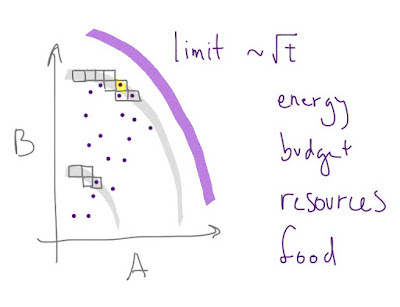 limit ~√t
energy
B
budget
resources
food
A